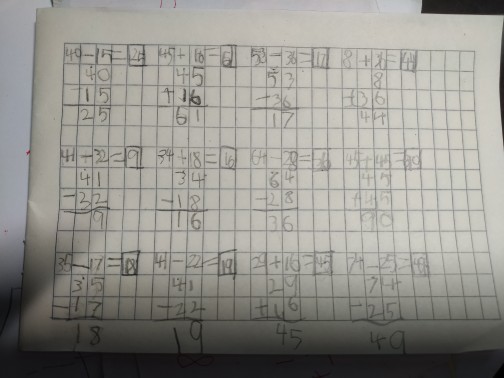 40-15=25 45+16=61 53-36=17 8+36=44
40 45 53 8
-15 +16 -36 +36
25 61 17 44
41-32=9 34+18=16 64-28=36 45+45=90
41 34 64 45
-32 -18 -28 +45
9 16 36 90
35-17=18 41-22=19 29+16=45 74-25=49
35 41 29 74
-17 -22 +16 -25
18 19 45 49